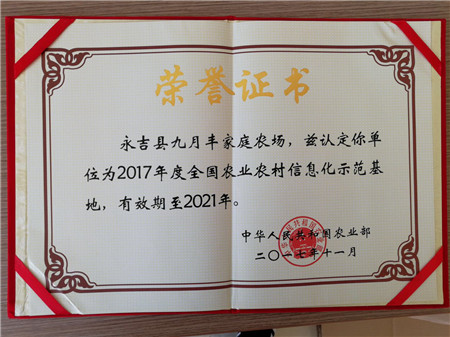 荣誉证书
永吉县九月丰家庭农场，兹认定你单
位为2017年度全国农业农村信息化示范基
地，有效期至2021年。
中华人民共和国农业部
二〇一七年十一月